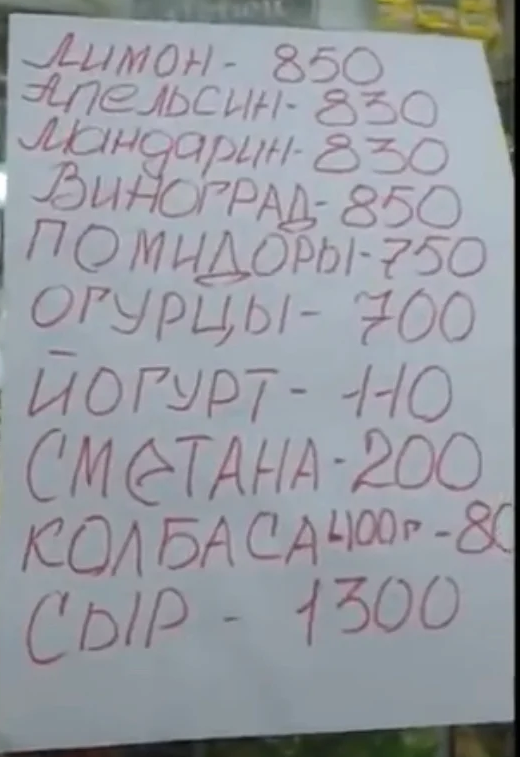 Лимон - 850
Апельсин - 830
Мандарин - 830
ВИНОГРАД - 850
ПОМИДОРЫ - 750
ОГУРЦЫ - 700
ЙОГУРТ - 110
СМЕТАНА - 200
КОЛБАСА 400г -
СЫР - 1300